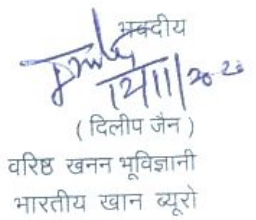 भवदीय
12/11/2020
( दिलीप जैन )
वरिष्ठ खनन भूविज्ञानी
भारतीय खान ब्यूरो